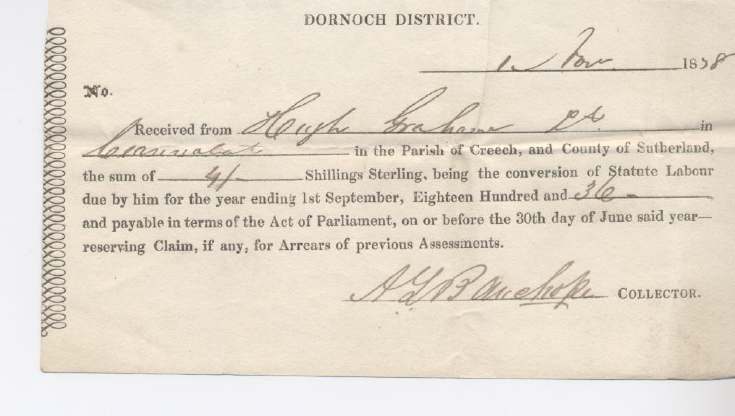 DORNOCH DISTRICT.
1 Nov 1838
No.
Received from Hugh Graham in
in the Parish of Creech, and County of Sutherland,
the sum of 4/- Shillings Sterling, being the conversion of Statute Labour
due by him for the year ending 1st September, Eighteen Hundred and 36
and payable in terms of the Act of Parliament, on or before the 30th day of June said year—
reserving Claim, if any, for Arrears of previous Assessments.
COLLECTOR.